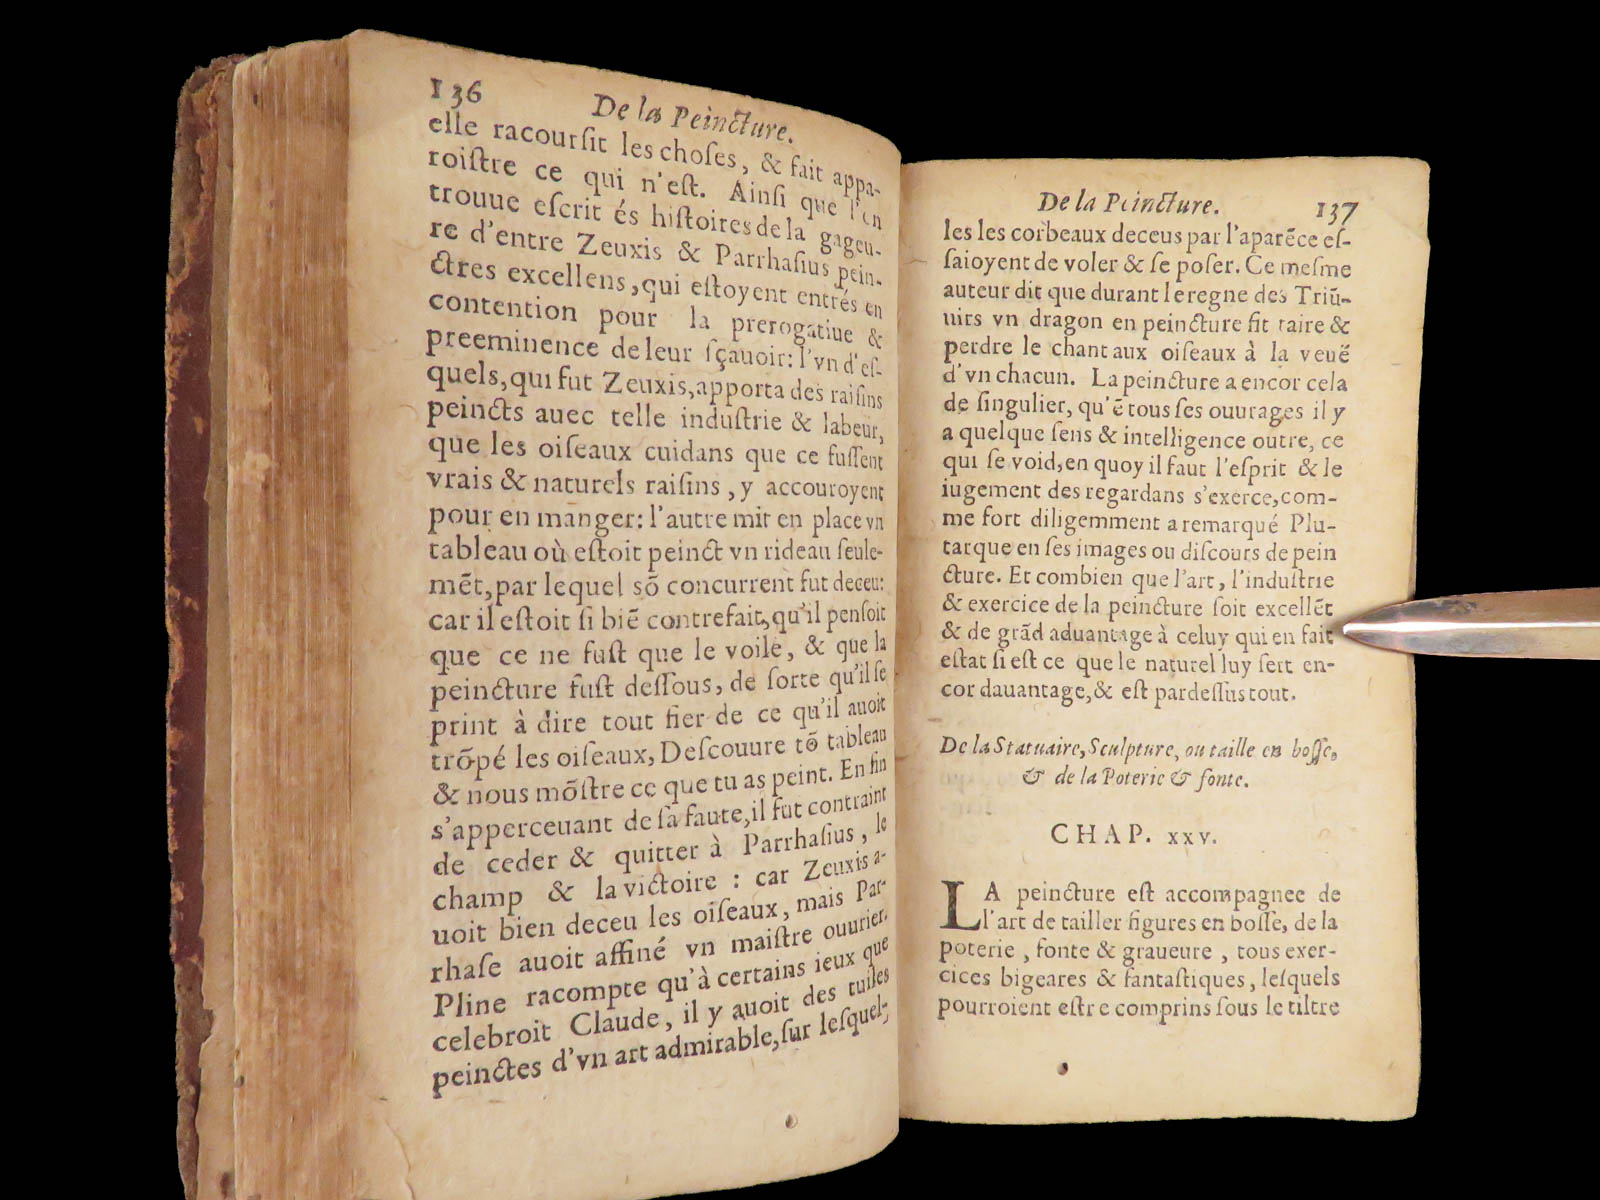 136
De la Peincture.
elle racourſit les choſes, & fait appa-
roiſtre ce qui n'eſt. Ainſi que l'on
trouue eſcrit és hiſtoires de la gageu-
re d'entre Zeuxis & Parrhaſius pein-
ctres excellens, qui eſtoyent entrés en
contention pour la prerogatiue &
preeminence de leur ſçauoir: l'vn d'eſ-
quels, qui fut Zeuxis, apporta des raiſins
peincts auec telle induſtrie & labeur,
que les oiſeaux cuidans que ce fuſſent
vrais & naturels raiſins, y accouroyent
pour en manger: l'autre mit en place vn
tableau où eſtoit peinct vn rideau ſeule-
mẽt, par lequel sõ concurrent fut deceu:
car il eſtoit ſi biẽ contrefait, qu'il penſoit
que ce ne fuſt que le voile, & que la
peincture fuſt deſſous, de ſorte qu'il ſe
print à dire tout fier de ce qu'il auoit
trõpé les oiſeaux, Deſcouure tõ tableau
& nous mõſtre ce que tu as peint. En fin
s'apperceuant de ſa faute, il fut contraint
de ceder & quitter à Parrhaſius, le
champ & la victoire : car Zeuxis a-
uoit bien deceu les oiſeaux, mais Par-
rhaſe auoit affiné vn maiſtre ouurier.
Pline racompte qu'à certains ieux que
celebroit Claude, il y auoit des tuiles
peinctes d'vn art admirable, ſur leſquel-
De la Peincture. 137
les les corbeaux deceus par l'aparẽce eſ-
ſaioyent de voler & ſe poſer. Ce meſme
auteur dit que durant le regne des Triũ-
uirs vn dragon en peincture fit taire &
perdre le chant aux oiſeaux à la veuë
d'vn chacun. La peincture a encor cela
de ſingulier, qu'ẽ tous ſes ouurages il y
a quelque ſens & intelligence outre, ce
qui ſe void, en quoy il faut l'eſprit & le
iugement des regardans s'exerce, com-
me fort diligemment a remarqué Plu-
tarque en ſes images ou diſcours de pein
cture. Et combien que l'art, l'induſtrie
& exercice de la peincture ſoit excellẽt
& de grãd aduantage à celuy qui en fait
eſtat ſi eſt ce que le naturel luy ſert en-
cor dauantage, & eſt pardeſſus tout.
De la Statuaire, Sculpture, ou taille en boſſe,
& de la Poterie & fonte.
CHAP. XXV.
LA peincture eſt accompagnee de
l'art de tailler figures en boſſe, de la
poterie, fonte & graueure, tous exer-
cices bigeares & fantaſtiques, leſquels
pourroient eſtre comprins ſous le tiltre